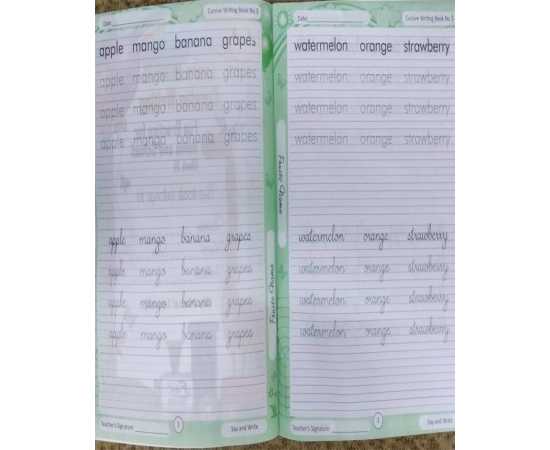 Date: Cursive Writing Book No.5
apple mango banana grapes
apple mango banana grapes
apple mango banana grapes
apple mango banana grapes
apple mango banana grapes
apple mango banana grapes
apple mango banana grapes
apple mango banana grapes
Fruits Name
Teacher's Signature Say and Write
Date: Cursive Writing Book No.5
watermelon orange strawberry
watermelon orange strawberry
watermelon orange strawberry
watermelon orange strawberry
watermelon orange strawberry
watermelon orange strawberry
watermelon orange strawberry
watermelon orange strawberry
Fruits Name
Teacher's Signature Say and Write